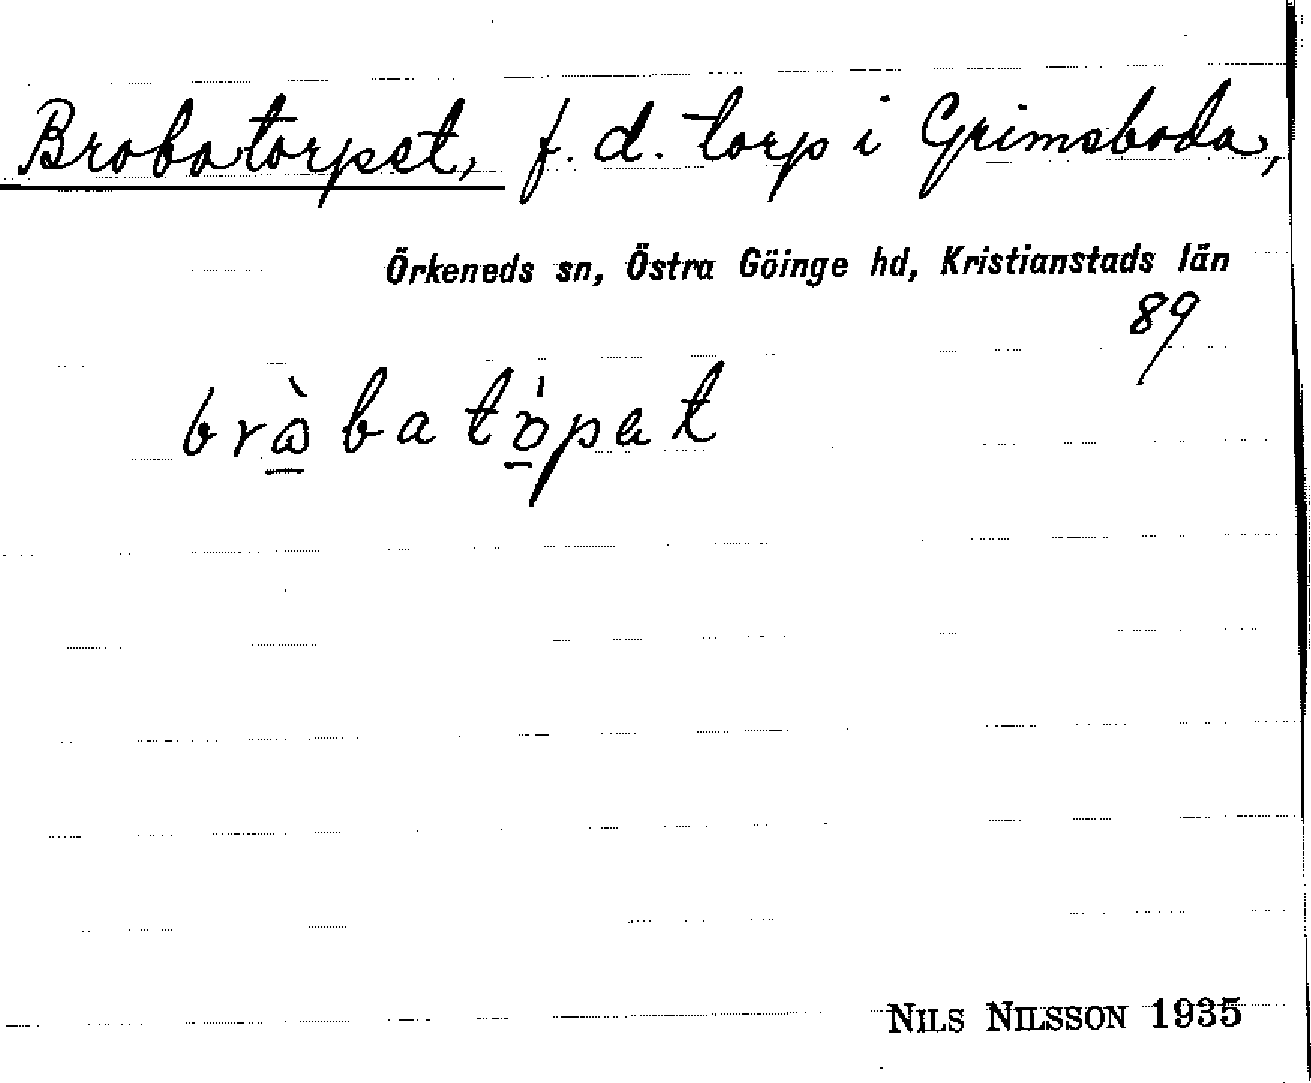 Brobatorpet, f. d. torp i Grimsboda,
Örkeneds sn, Östra Göinge hd, Kristianstads län
89
NILS NILSSON 1935